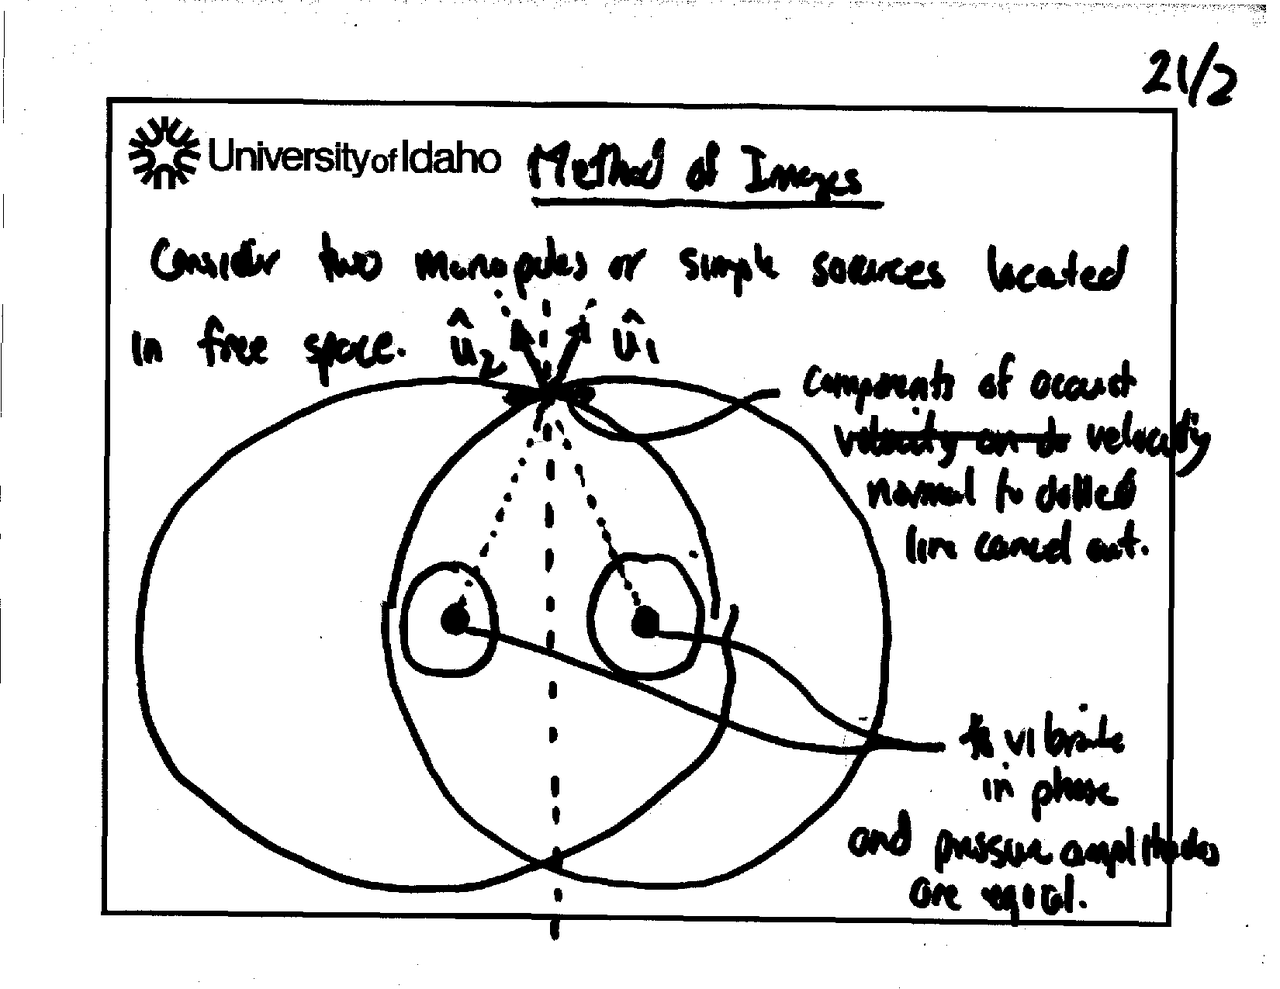 21/2
University of Idaho Method of Images
Consider two monopoles or simple sources located
in free space. û2 û1
Components of acoust
velocity on do velocity
normal to dotted
line cancel out.
vibrate
in phase
and pressure amplitudes
are equal.